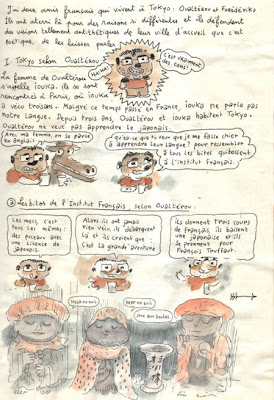 J'ai deux amis français qui vivent à Tokyo : Oualtérou et Frédériko
Ils ont atterri là pour des raisons si différentes et ils défendent
des visions tellement antithétiques de leur ville d'accueil que c'est
poétique, de les laisser parler
1 Tokyo selon Oualtérou
C'est vraiment
des cons!
La femme de Oualtérou
s'appelle iouka. ils se sont
rencontrés à Paris, où iouka
a vécu trois ans. Malgré ce temps passé en France, iouka ne parle pas
notre langue. Depuis trois ans, Oualtérou et iouka habitent Tokyo.
Oualtérou ne veut pas apprendre le japonais.
Avec ma femme, on se parle
en anglais
Qu'est-ce que tu veux que je me fasse chier
à apprendre leur langue? pour ressembler
à tous les bitos qui bossent
à l'institut français.
2 Les bitos de l'Institut Français, selon Oualtérou:
Les mecs, c'est
tous les mêmes:
des puceaux avec
une licence de
japonais.
Alors ils ont jamais
rien vécu, ils débarquent
là et ils croient que
c'est la grande aventure
ils donnent trois cours
de français, ils baisent
une japonaise et ils
se prennent pour
François Truffaut.